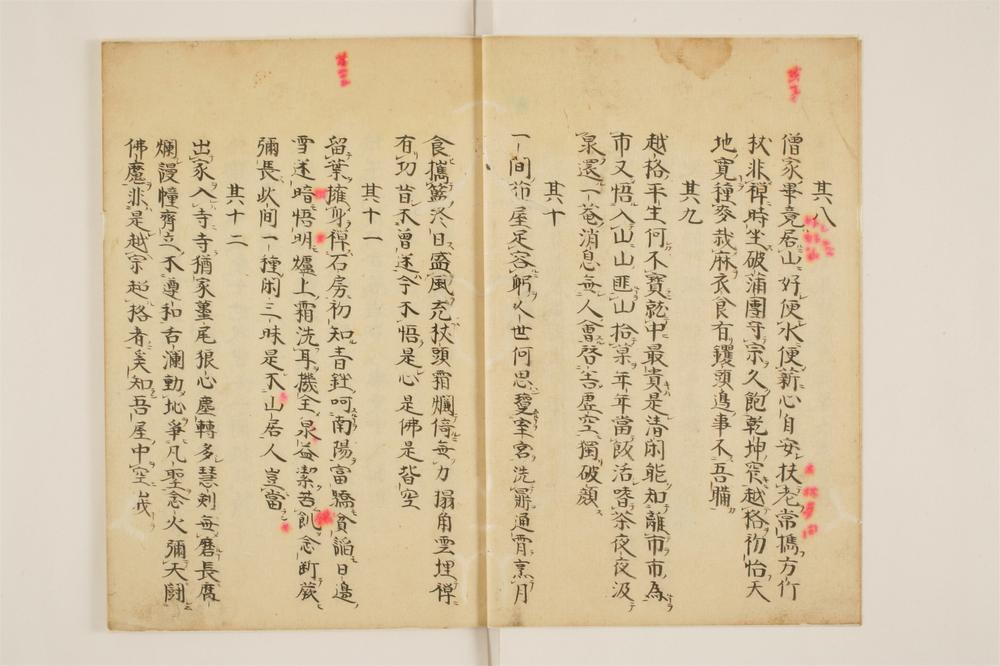 其八
僧家畢竟居山好便水便薪心自安扶老常携方竹
杖非禪時坐破蒲團守宗久飽乾坤窄越格初怡天
地寛種麥栽麻衣食有钁頭邊事不吾瞞
其九
越格平生何不寶就中最貴是清閑能知離市市為
市又悟入山山匪山拾菓年年當飯活嗜茶夜夜汲
泉還一菴消息每人會啓告虚空獨破顔
其十
一間茆屋足容躬人世何思室宮洗鼎通霄烹月
食攜籃冬日盛風充杖頭霜爛倚每力搨角雲埋禪
有功昔不曾迷今不悟是心是佛是皆空
其十一
留葉擁身禪石房初知青銼呵南陽富驕貧諂日邊
雪迷暗悟明爐上霜洗耳機全泉益潔苦飢念断蕨
彌長此間一種閑三昧是不山居人豈當
其十二
出家入寺寺猶家蠆尾狼心塵轉多慧剣每磨長腐
爛謾幢齊立不遵和古瀾動地爭凡聖念火彌天鬪
佛魔非是越宗超格者奚知吾屋中空